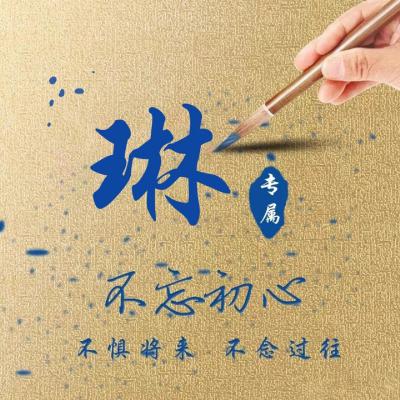 琳
专属
不忘初心
不惧将来 不念过往